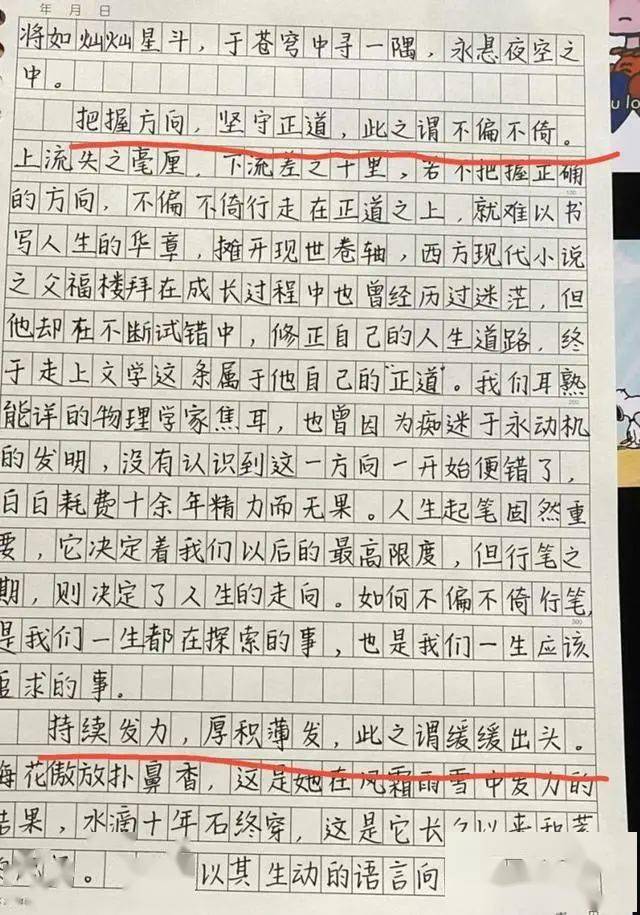 年 月 日
将如灿灿星斗，于苍穹中寻一隅，永悬夜空之
中。
把握方向，坚守正道，此之谓不偏不倚。
上流失之毫厘，下流差之千里，若不把握正确
的方向，不偏不倚行走在正道之上，就难以书
写人生的华章，摊开现世卷轴，西方现代小说
之父福楼拜在成长过程中也曾经历过迷茫，但
他却在不断试错中，修正自己的人生道路，终
于走上文学这条属于他自己的“正道”。我们耳熟
能详的物理学家焦耳，也曾因为痴迷于永动机
的发明，没有认识到这一方向一开始便错了，
白白耗费十余年精力而无果。人生起笔固然重
要，它决定着我们以后的最高限度，但行笔之
期，则决定了人生的走向。如何不偏不倚行笔，
是我们一生都在探索的事，也是我们一生应该
追求的事。
持续发力，厚积薄发，此之谓缓缓出头。
梅花傲放扑鼻香，这是她在风霜雨雪中发力的
结果，水滴十年石终穿，这是它长久以来和
。以其生动的语言向
u lo